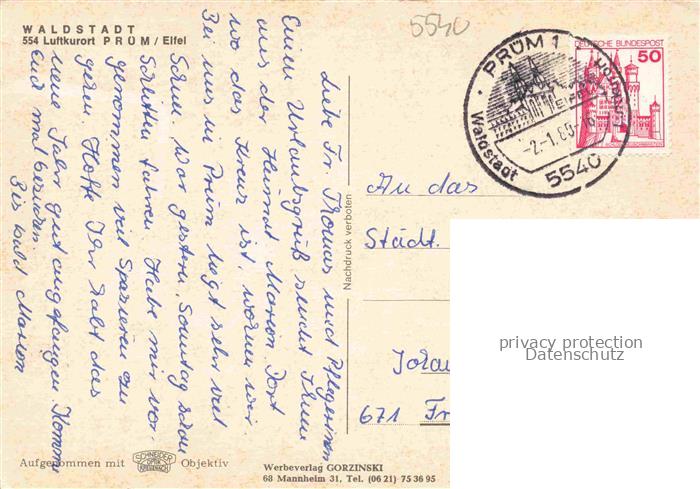 WALDSTADT
554 Luftkurort PRÜM / Eifel
5540
Liebe Fr. Thomas und Pflegerinnen
Einen Urlaubsgruß sendet Ihnen
aus der Heimat Marion. Dort
wo das Kreuz ist, wohnen wir.
Bei uns in Prüm liegt sehr viel
Schnee. War gestern, Sonntag
Schlitten fahren. Habe mir vor-
genommen viel Spazieren zu
gehen. Hoffe Ihr habt das
neue Jahr gut angefangen. Komme
Euch mal besuchen.
Bis bald Marion
Nachdruck verboten
PRÜM 1
Luftkurort
EIFEL
-2.-1.80-16
Waldstadt
5540
DEUTSCHE BUNDESPOST
50
An das
Städt.
671 Fr
privacy protection
Datenschutz
Aufgenommen mit SCHNEIDER OPTIK KREUZNACH Objektiv
Werbeverlag GORZINSKI
68 Mannheim 31, Tel. (06 21) 75 36 95